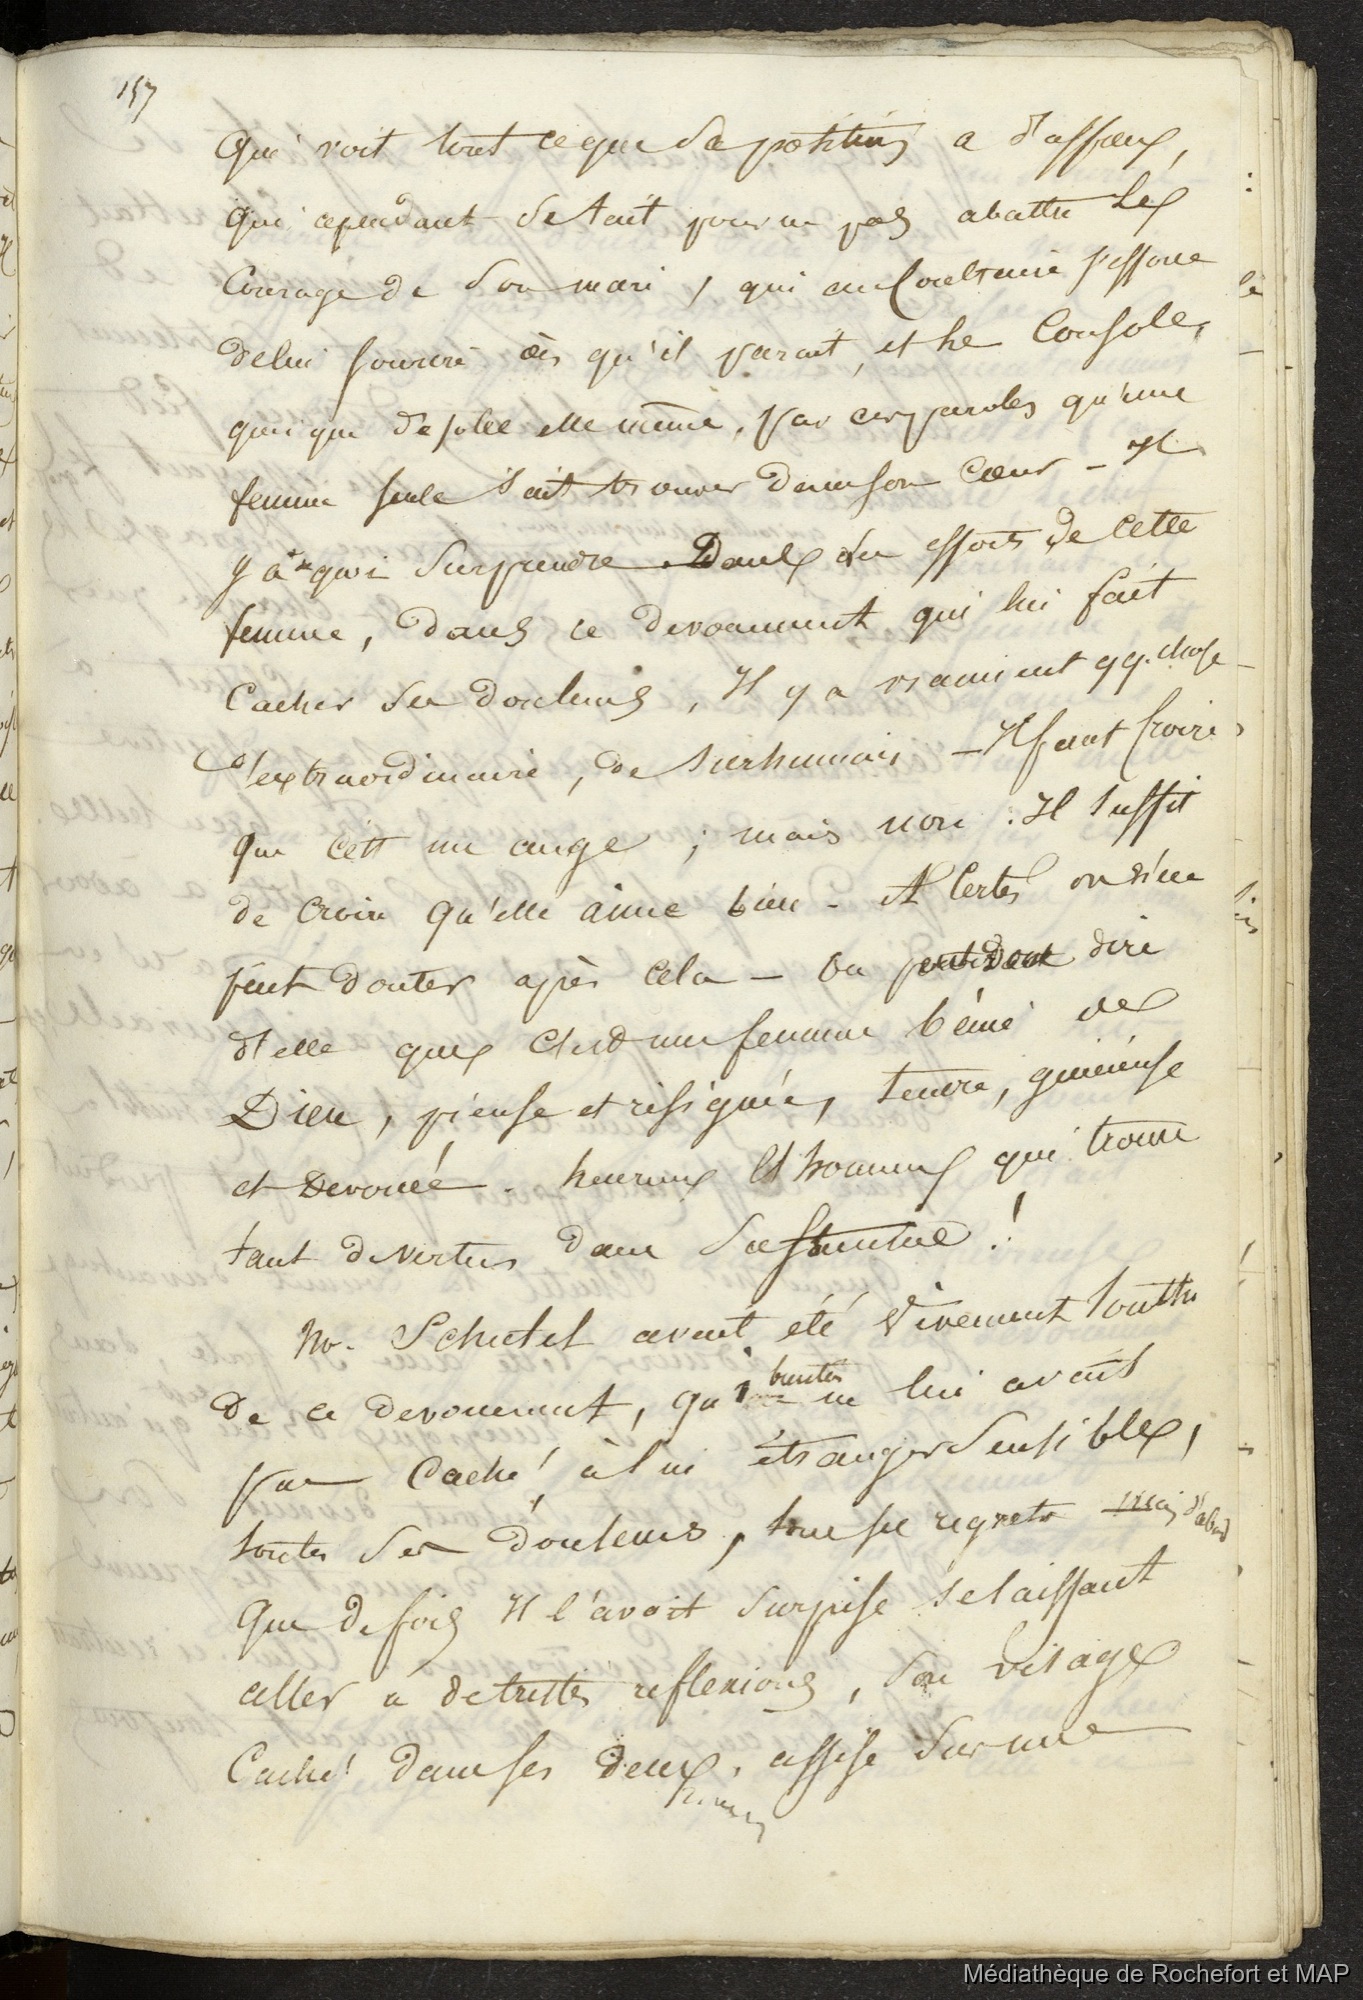 157
Qui voit tout ce que sa position a d'affreux,
qui cependant se tait pour ne pas abattre le
Courage de son mari, qui au contraire s'efforce
de lui sourire dès qu'il parait, et le Console,
quoique desolée elle même, par ces paroles qu'une
femme seule sait trouver dans son Cœur - Il
y a de quoi surprendre. Dans les efforts de cette
femme, dans ce devouement qui lui fait
Cacher ses douleurs, Il y a vraiment qq. chose
d'extraordinaire, de surhumain - Il faut Croire
que c'est un ange ; mais non : Il suffit
de croire qu'elle aime bien - et Certes on n'en
peut douter après cela - On peut dire
d'elle que C'est une femme bénie de
Dieu, pieuse et resignée, tendre, genéreuse
et Devouée. heureux l'homme qui trouve
tant de vertus dans sa femme !
Mr. Schutel avait été Vivement touché
de ce devouement, qui bientôt ne lui avait
pas Caché, à lui étranger Sensible,
toutes ses Douleurs, tous ses regrets d'abord
Que de fois Il l'avait surprise se laissant
aller a de tristes reflexions, son visage
Caché dans ses deux mains, assise sur une
Médiathèque de Rochefort et MAP